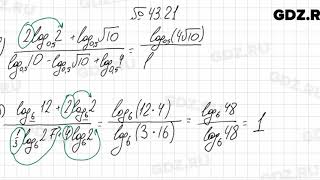 № 43.21
GDZ.RU
) (2log₀,₅2 + log₀,₅√10) / (log₀,₅10 - log₀,₅√10 + log₀,₅4) = log₀,₅(4√10) /
) (log₆12 + 2log₆2) / (1/3 log₆27 + 4log₆2) = log₆(12·4) / log₆(3·16) = log₆48 / log₆48 = 1